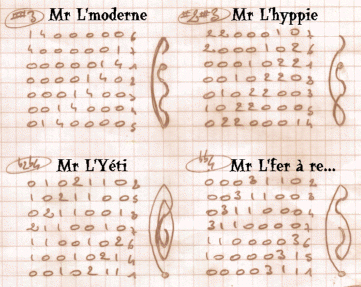 #3 Mr L'moderne
1 4 0 0 0 0 0 6
4 0 0 0 0 0 1 7
0 0 0 0 0 1 4 1
0 0 0 0 1 4 0 2
0 0 0 1 4 0 0 3
0 0 1 4 0 0 0 4
0 1 4 0 0 0 0 5
#2#3 Mr L'hyppie
2 2 0 0 0 1 0 7
2 0 0 0 1 0 2 6
0 0 0 1 0 2 2 1
0 0 1 0 2 2 0
0 1 0 2 2 0 0 3
1 0 2 2 0 0 0 5
0 2 2 0 0 0 1 4
b2b4 Mr L'Yéti
0 1 0 2 1 1 0
1 0 2 1 1 0 0 5
0 2 1 1 0 0 1
2 1 1 0 0 1 0 7
1 1 0 0 1 0 2 6
1 0 0 1 0 2 1 4
0 0 1 0 2 1 1 1
Mr L'fer à re...
0 0 0 3 1 1 0 2
0 0 3 1 1 0 0 3
0 3 1 1 0 0 0 4
3 1 1 0 0 0 0 7
1 1 0 0 0 0 3 6
1 0 0 0 0 3 1 5
0 0 0 0 3 1 1 1